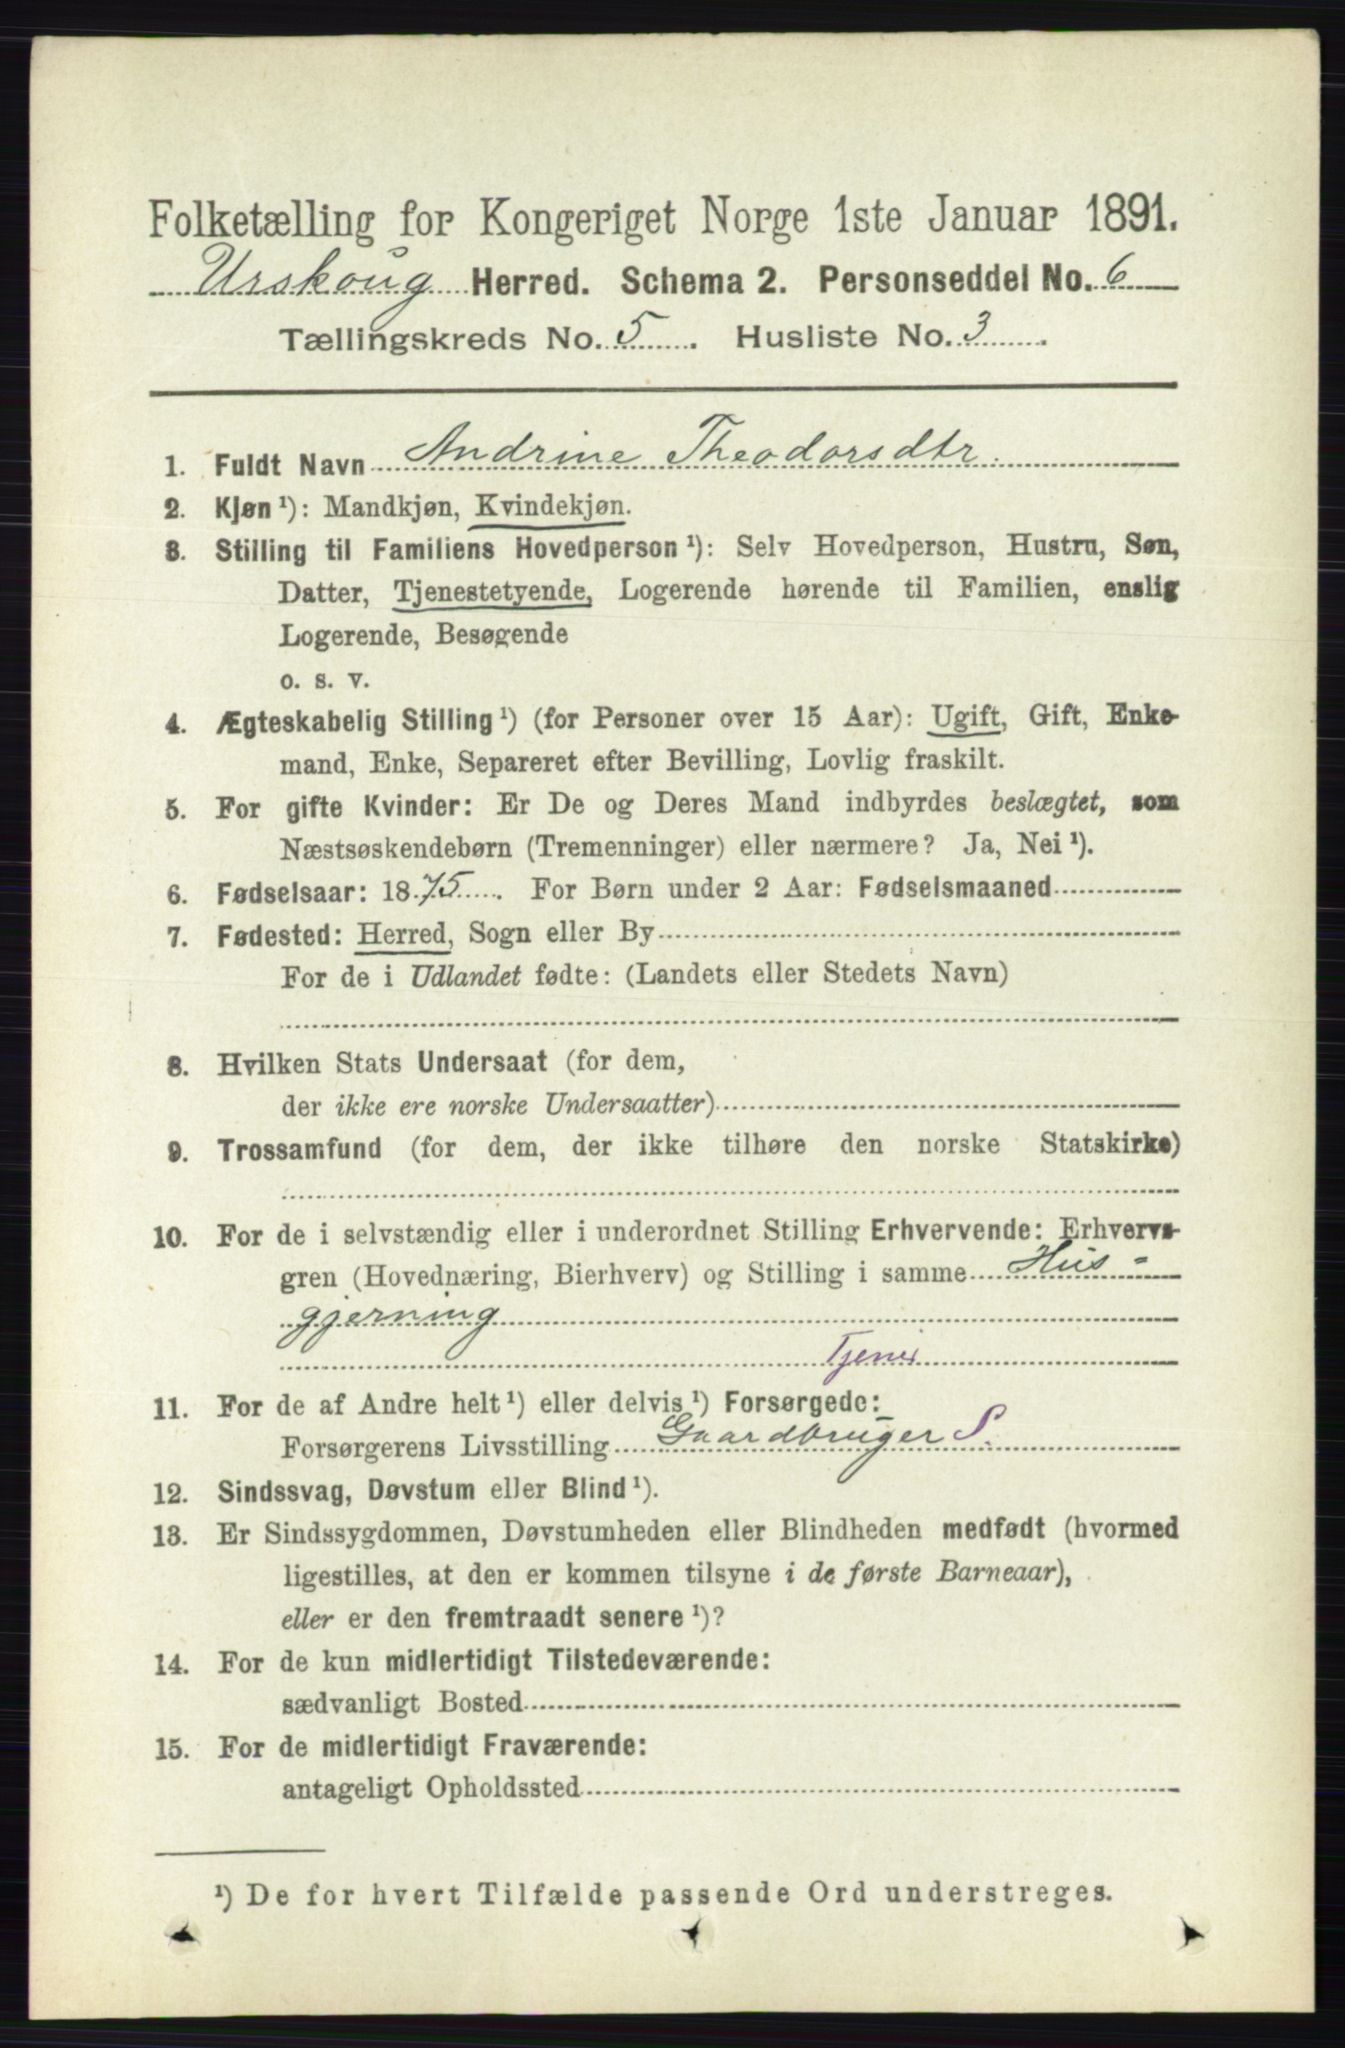 Folketælling for Kongeriget Norge 1ste Januar 1891.
Urskoug Herred. Schema 2. Personseddel No. 6
Tællingskreds No. 5. Husliste No. 3.
1. Fuldt Navn Andrine Theodorsdtr.
2. Kjøn ¹): Mandkjøn, Kvindekjøn.
3. Stilling til Familiens Hovedperson ¹): Selv Hovedperson, Hustru, Søn,
Datter, Tjenestetyende, Logerende hørende til Familien, enslig
Logerende, Besøgende
o. s. v.
4. Ægteskabelig Stilling ¹) (for Personer over 15 Aar): Ugift, Gift, Enke-
mand, Enke, Separeret efter Bevilling, Lovlig fraskilt.
5. For gifte Kvinder: Er De og Deres Mand indbyrdes beslægtet, som
Næstsøskendebørn (Tremenninger) eller nærmere? Ja, Nei ¹).
6. Fødselsaar: 1875. For Børn under 2 Aar: Fødselsmaaned
7. Fødested: Herred, Sogn eller By
For de i Udlandet fødte: (Landets eller Stedets Navn)
8. Hvilken Stats Undersaat (for dem,
der ikke ere norske Undersaatter)
9. Trossamfund (for dem, der ikke tilhøre den norske Statskirke)
10. For de i selvstændig eller i underordnet Stilling Erhvervende: Erhvervs-
gren (Hovednæring, Bierhverv) og Stilling i samme Hus-
gjerning
11. For de af Andre helt ¹) eller delvis ¹) Forsørgede:
Forsørgerens Livsstilling Gaardbruger S.
12. Sindssvag, Døvstum eller Blind ¹).
13. Er Sindssygdommen, Døvstumheden eller Blindheden medfødt (hvormed
ligestilles, at den er kommen tilsyne i de første Barneaar),
eller er den fremtraadt senere ¹)?
14. For de kun midlertidigt Tilstedeværende:
sædvanligt Bosted
15. For de midlertidigt Fraværende:
antageligt Opholdssted
¹) De for hvert Tilfælde passende Ord understreges.